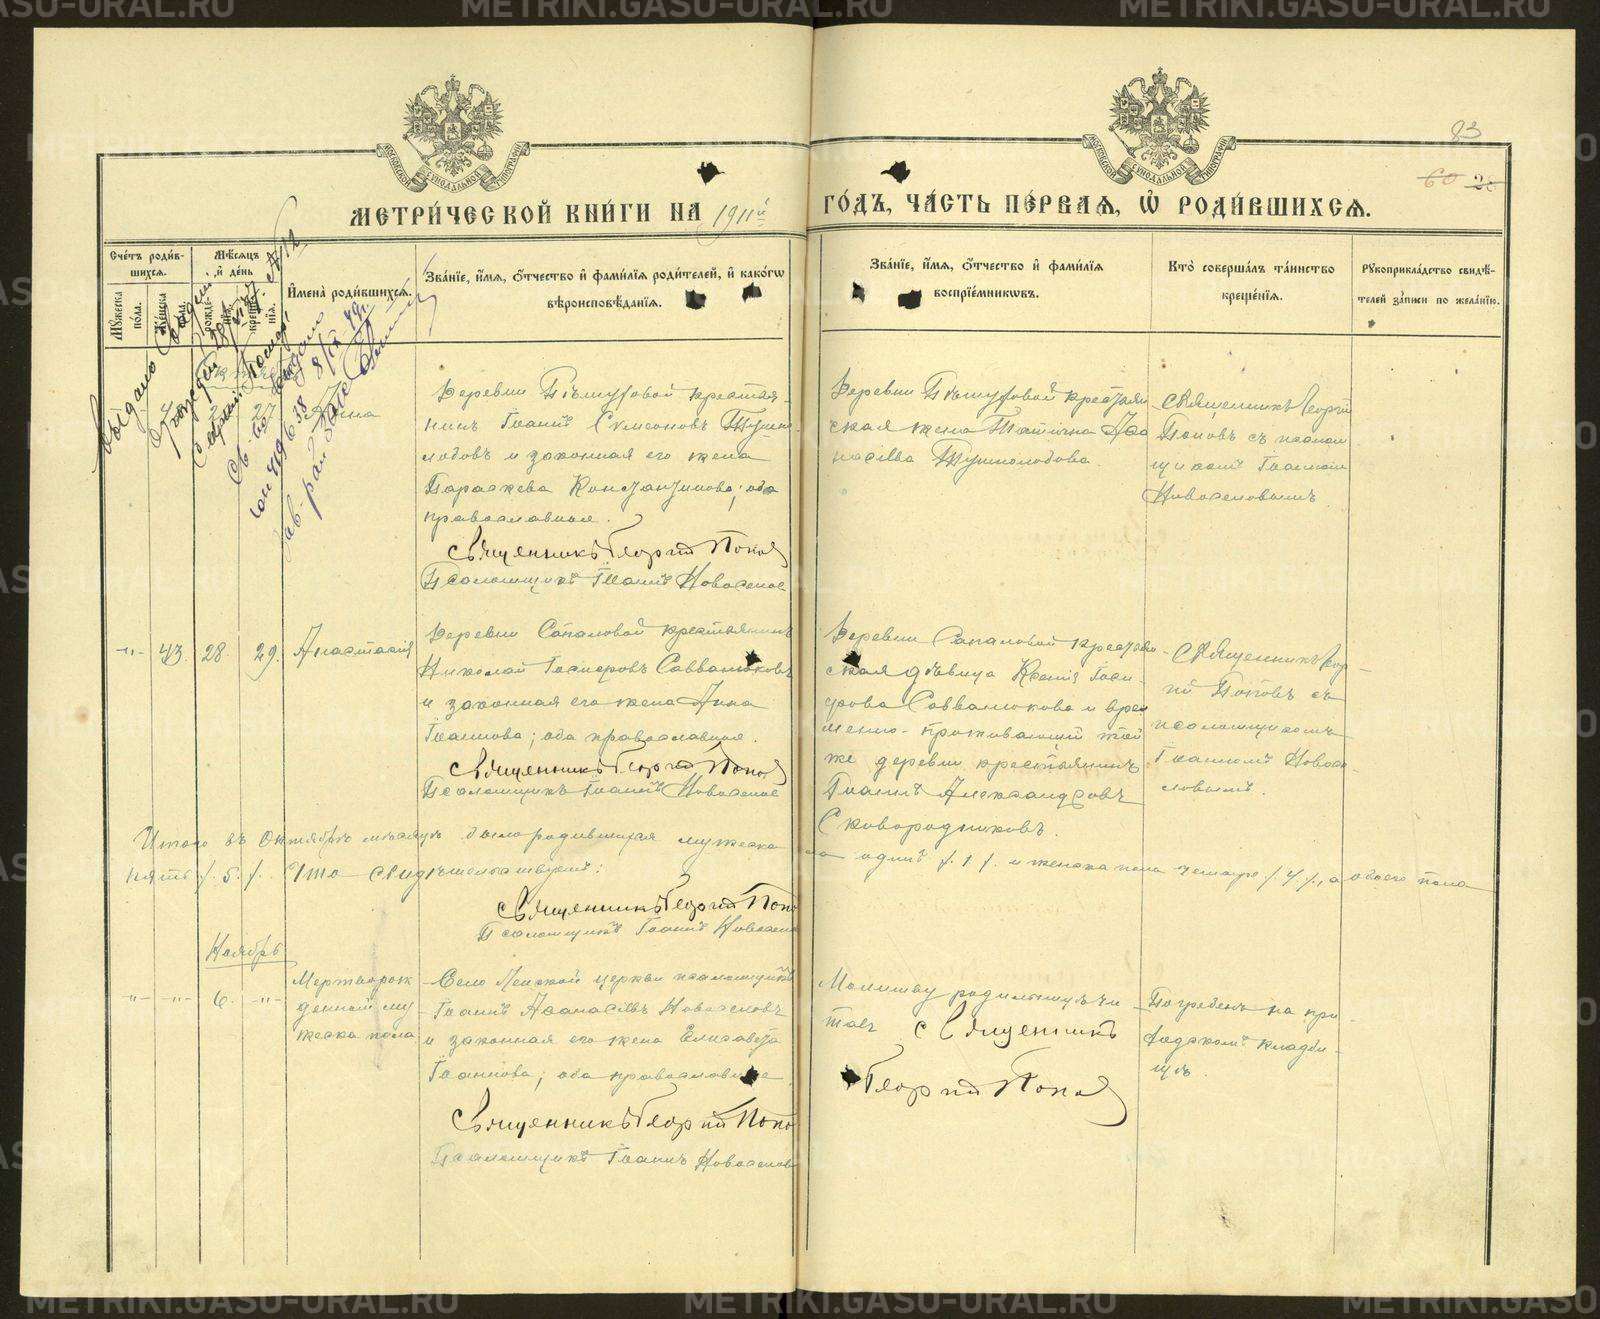 METRIKI.GASU-URAL.RU
МОСКОВСКОЙ СУНОДАЛЬНОЙ ТИПОГРАФІИ
МОСКОВСКОЙ СУНОДАЛЬНОЙ ТИПОГРАФІИ
83
60 28
МЕТРИ́ЧЕСКОЙ КНИ́ГИ НА 1911й
ГО́ДЪ, ЧА́СТЬ ПЕ́РВАЯ, Ѡ҆ РОДИ́ВШИХСЯ.
Сче́тъ роди́в-
шихся.
Мѣ́сяцъ
и҆ де́нь
Му́жеска
по́ла.
Же́нска
по́ла.
рожде́-
нія.
креще́-
нія.
И҆мена̀ роди́вшихся.
Зва́ніе, и҆́мя, ѻ҆́тчество и҆ фами́лія роди́телей, и҆ како́гѡ
вѣроисповѣ́данія.
Зва́ніе, и҆́мя, ѻ҆́тчество и҆ фами́лія
воспріе́мникѡвъ.
Кто̀ соверша́лъ та́инство
креще́нія.
Рꙋкоприкла́дство свидѣ́-
телей за́писи по жела́нію.
Выдано
27
Анна
Деревни крестья-
нинъ Іоаннъ Симеоновъ Тушно-
лобовъ и законная его жена
Параскева Константинова; оба
православные.
Священникъ Георгій Поповъ
Псаломщикъ Іоаннъ Новоселовъ
Деревни крестьян
ская жена Татіана Аѳа
насіева Тушнолобова.
Священникъ Георгій
Поповъ съ псалом
щикомъ Іоанномъ
Новоселовымъ
-"- 43. 28. 29. Анастасія
Деревни Сапаловой крестьянинъ
Николай Гаспоровъ Саввалюковъ
и законная его жена Анна
Іоаннова; оба православные.
Священникъ Георгій Поповъ
Псаломщикъ Іоаннъ Новоселов
Деревни Сапаловой крестьян-
ская дѣвица Ксенія
Саввалюкова и вре
менно-проживающій той
же деревни крестьянинъ
Іоаннъ Александровъ
Сковородниковъ.
Священникъ Геор-
гій Поповъ съ
псаломщикомъ
Іоанномъ Новосе-
ловымъ.
Итого въ Октябрѣ мѣсяцѣ было родившихся мужеска
пола одинъ /.1./. и женска пола четыре /.4./., а обоего пола
пять /.5./. Что свидѣтельствуемъ:
Священникъ Георгій Попо
Псаломщикъ Іоаннъ Новосел
Ноябрь
-"- -"- 6. -"-
Мертворож
денной му
жеска пола
Села Ленской церкви псаломщикъ
Іоаннъ Аѳанасіевъ Новоселовъ
и законная его жена Елисавета
Іоаннова; оба православные.
Священникъ Георгій Попо
Псаломщикъ Іоаннъ Новоселов
Молитву родильницѣ чи
талъ Священникъ
Георгій Поповъ
Погребенъ на при
ходскомъ кладби-
щѣ.